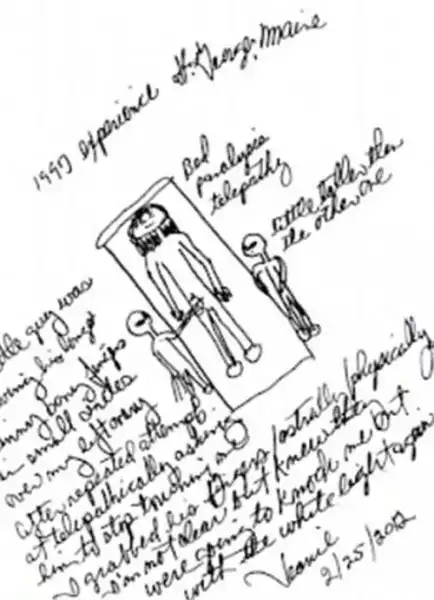 1997 experience St. George, Maine
Bed
paralysis
telepathy
little taller than
the other one
little guy was
moving his longest
skinny bony
in small circles
over my left ovary
after repeated attempts
at telepathically asking
him to stop touching me
I grabbed his fingers/astrally/physically
I'm not clear but knew they
were going to knock me out
with the white light again
2/25/2012